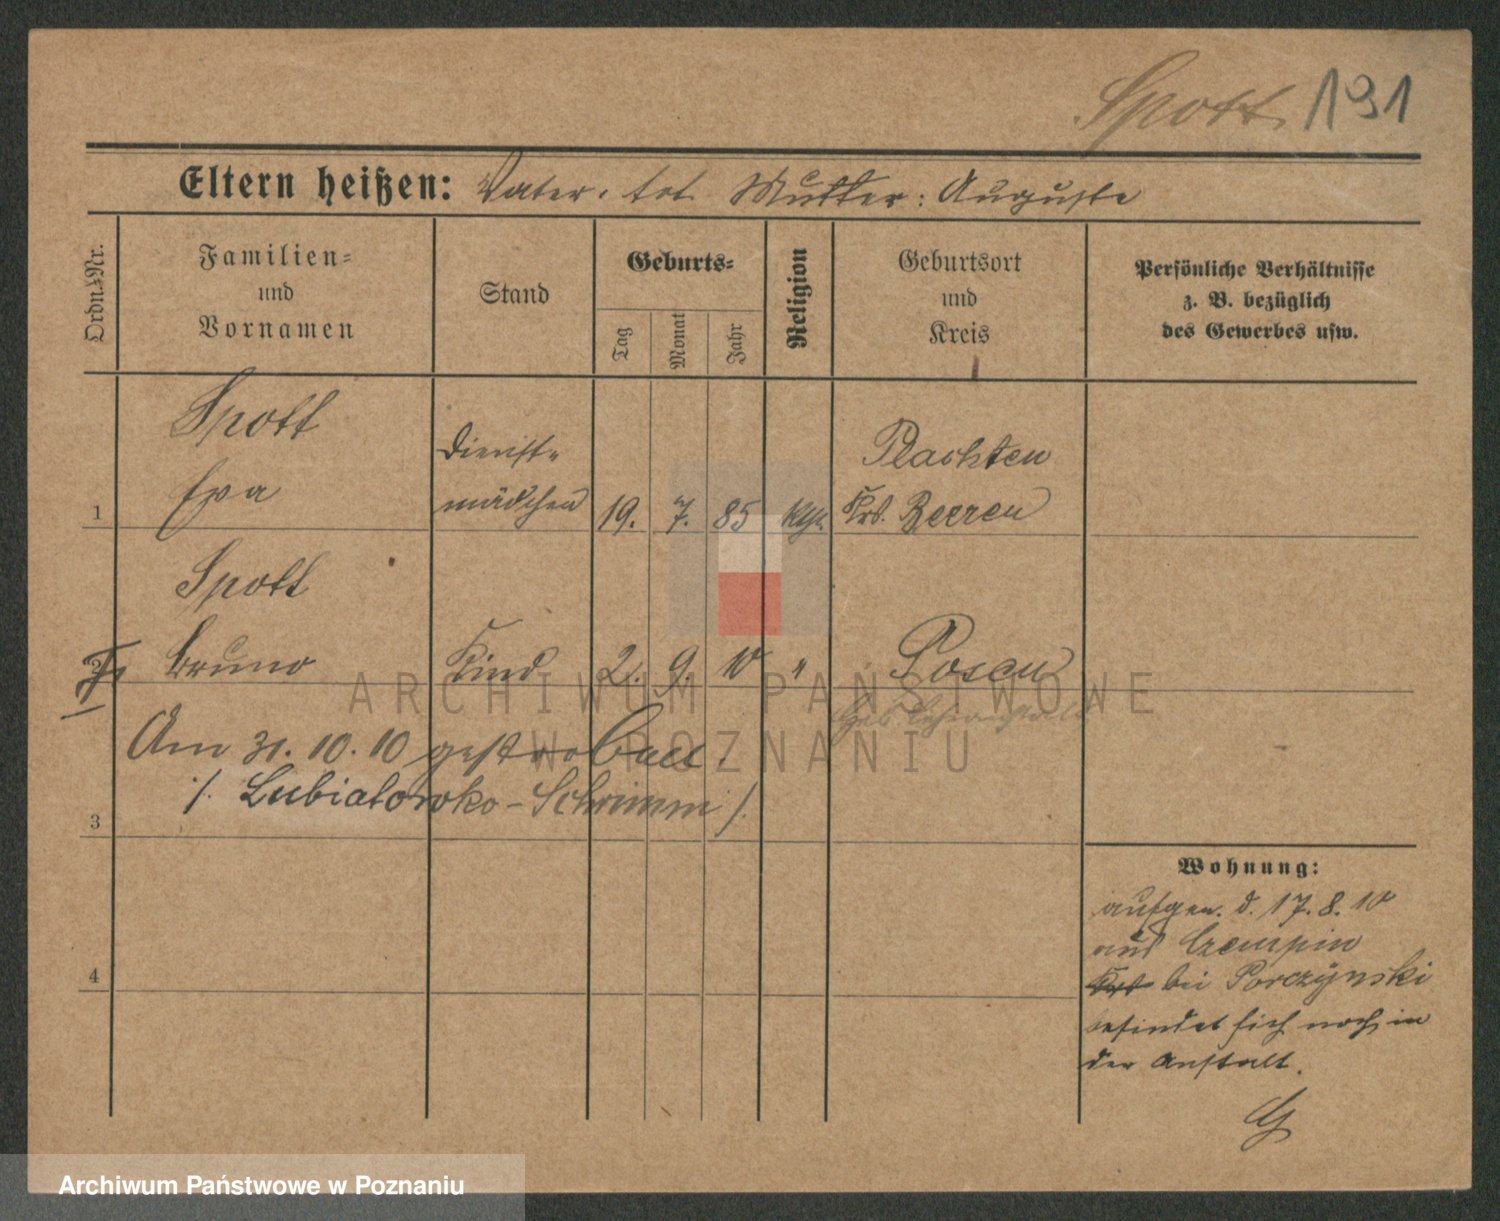 Spott 191
Eltern heißen: Vater: tot Mutter: Auguste
Ordn.-Nr.
Familien-
und
Vornamen
Stand
Geburts-
Tag
Monat
Jahr
Religion
Geburtsort
und
Kreis
Persönliche Verhältnisse
z. B. bezüglich
des Gewerbes usw.
1
Spott
Eva
Dienst-
mädchen
19. 7. 85 kth.
Plachten
Krs. Beeren
2
Spott
Bruno
Kind
2. 9. 10 "
Posen
Am 31. 10. 10 gestorben.
/. Lubiatowko - Schrimm /.
3
4
Wohnung:
aufgen. d. 17. 8. 10
aus Czempin
bei Porczynski
befindet sich noch in
der Anstalt.
ARCHIWUM PAŃSTWOWE
W POZNANIU
Archiwum Państwowe w Poznaniu